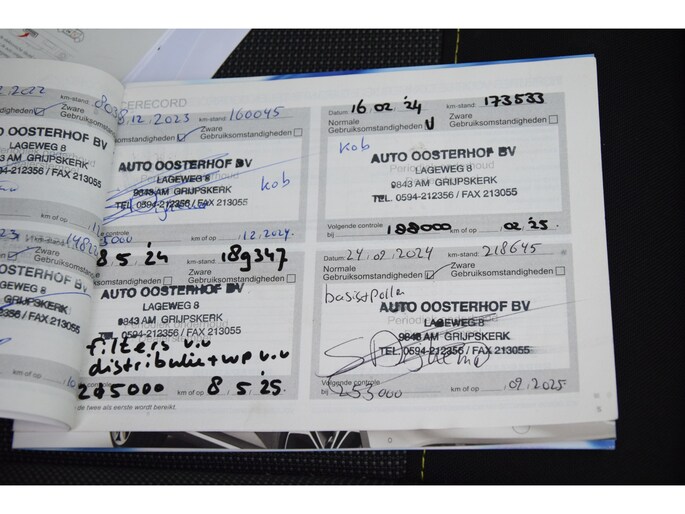 CERECORD
12.2023 km-stand: 160045
Zware
Gebruiksomstandigheden
AUTO OOSTERHOF BV
LAGEWEG 8
9843 AM GRIJPSKERK
TEL. 0594-212356 / FAX 213055
kob
km of op 12.2024
8 5 '24 189347
Gebruiksomstandigheden
AUTO OOSTERHOF BV
LAGEWEG 8
9843 AM GRIJPSKERK
TEL. 0594-212356 / FAX 213055
filters v.v
distributie + wp v.v
km of op 8 5 '25
de twee als eerste wordt bereikt.
Datum: 16 02 '24 km-stand: 173533
Normale
Gebruiksomstandigheden V
Zware
Gebruiksomstandigheden
kob
AUTO OOSTERHOF BV
LAGEWEG 8
9843 AM GRIJPSKERK
TEL. 0594-212356 / FAX 213055
Volgende controle
bij 188000 km of op 02 '25
Datum: 24 09 2024 km-stand: 218645
Normale
Gebruiksomstandigheden
Zware
Gebruiksomstandigheden
AUTO OOSTERHOF BV
LAGEWEG 8
9843 AM GRIJPSKERK
TEL. 0594-212356 / FAX 213055
Volgende controle
bij 253000 km of op 09.2025
5
km-stand:
Zware
Gebruiksomstandigheden
OOSTERHOF BV
LAGEWEG 8
AM GRIJPSKERK
212356 / FAX 213055
OOSTERHOF BV
LAGEWEG 8
AM GRIJPSKERK
212356 / FAX 213055